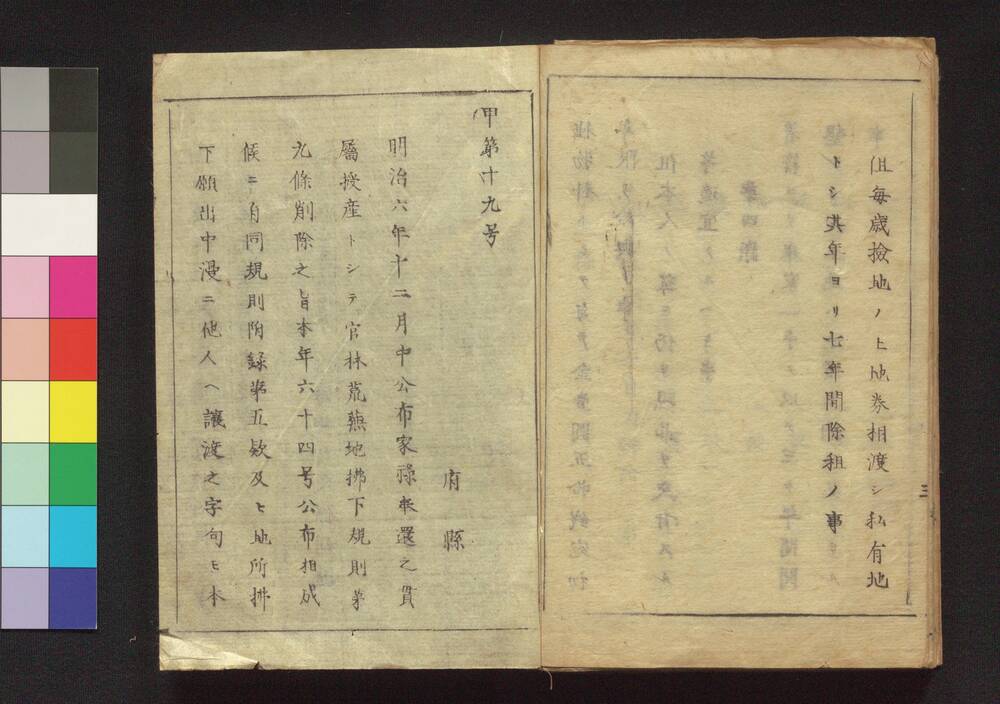 但毎歳撿地ノ上地券相渡シ私有地
トシ其年ヨリ七年間除租ノ事
三
甲第十九号
府縣
明治六年十二月中公布家禄奉還之貫
屬授産トシテ官林荒蕪地拂下規則第
九條削除之旨本年六十四号公布相成
候ニ自同規則附録第五欵及ヒ地所拂
下願出中漫ニ他人ヘ讓渡之字句モ本